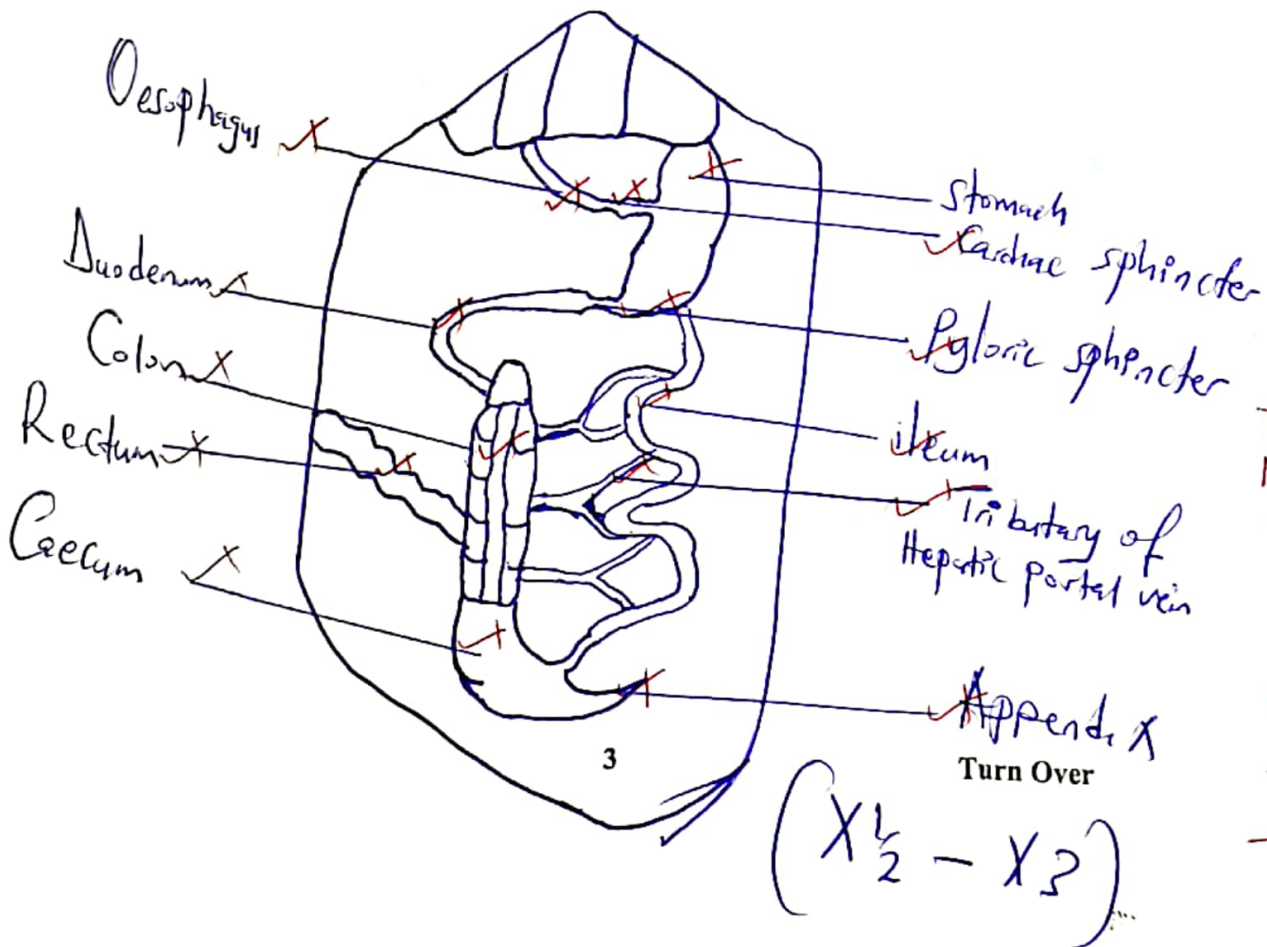 Oesophagus
Duodenum
Colon
Rectum
Caecum
Stomach
Cardiac sphincter
Pyloric sphincter
ileum
Tributary of
Hepatic portal vein
Appendix
3
Turn Over
(X½ – X3)